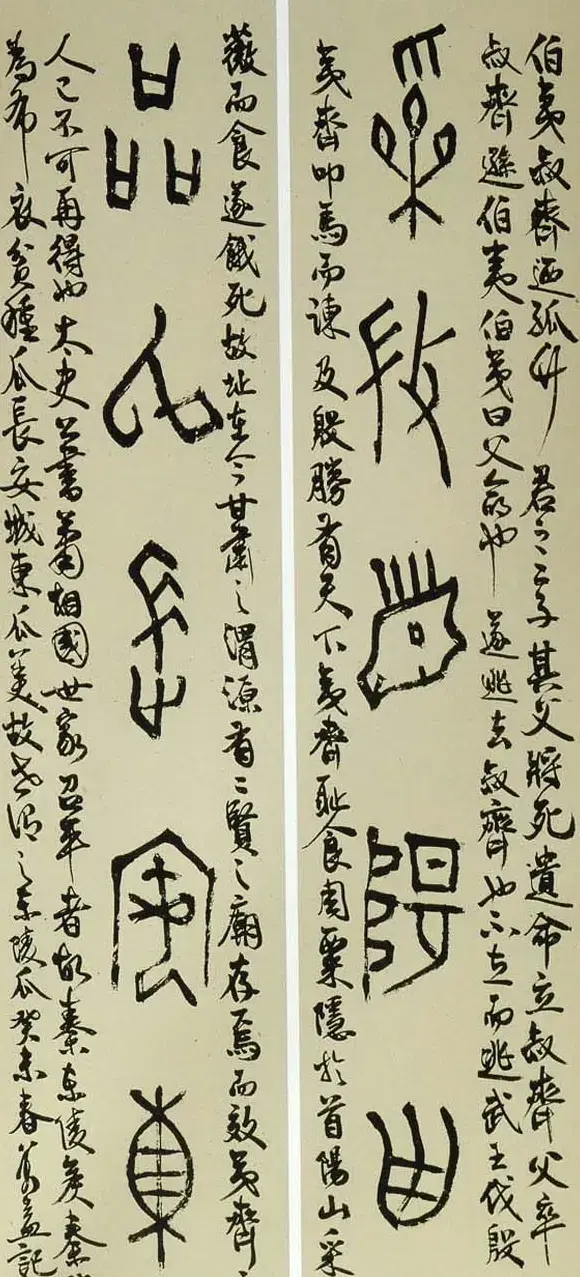 伯夷叔齊迺孤竹君之二子其父將死遺命立叔齊父卒
叔齊遜伯夷伯夷曰父命也遂逃去叔齊也不立而逃武王伐殷
采薇首陽曲
夷齊叩馬而諫及殷勝有天下夷齊恥食周粟隱於首陽山采
薇而食遂餓死故址在今甘肅之渭源有二賢之廟存焉而效夷齊
品瓜長安東
人已不可再得也太史公書蕭相國世家召平者故秦東陵侯秦
為布衣貧種瓜長安城東瓜美故世謂之東陵瓜癸未春記